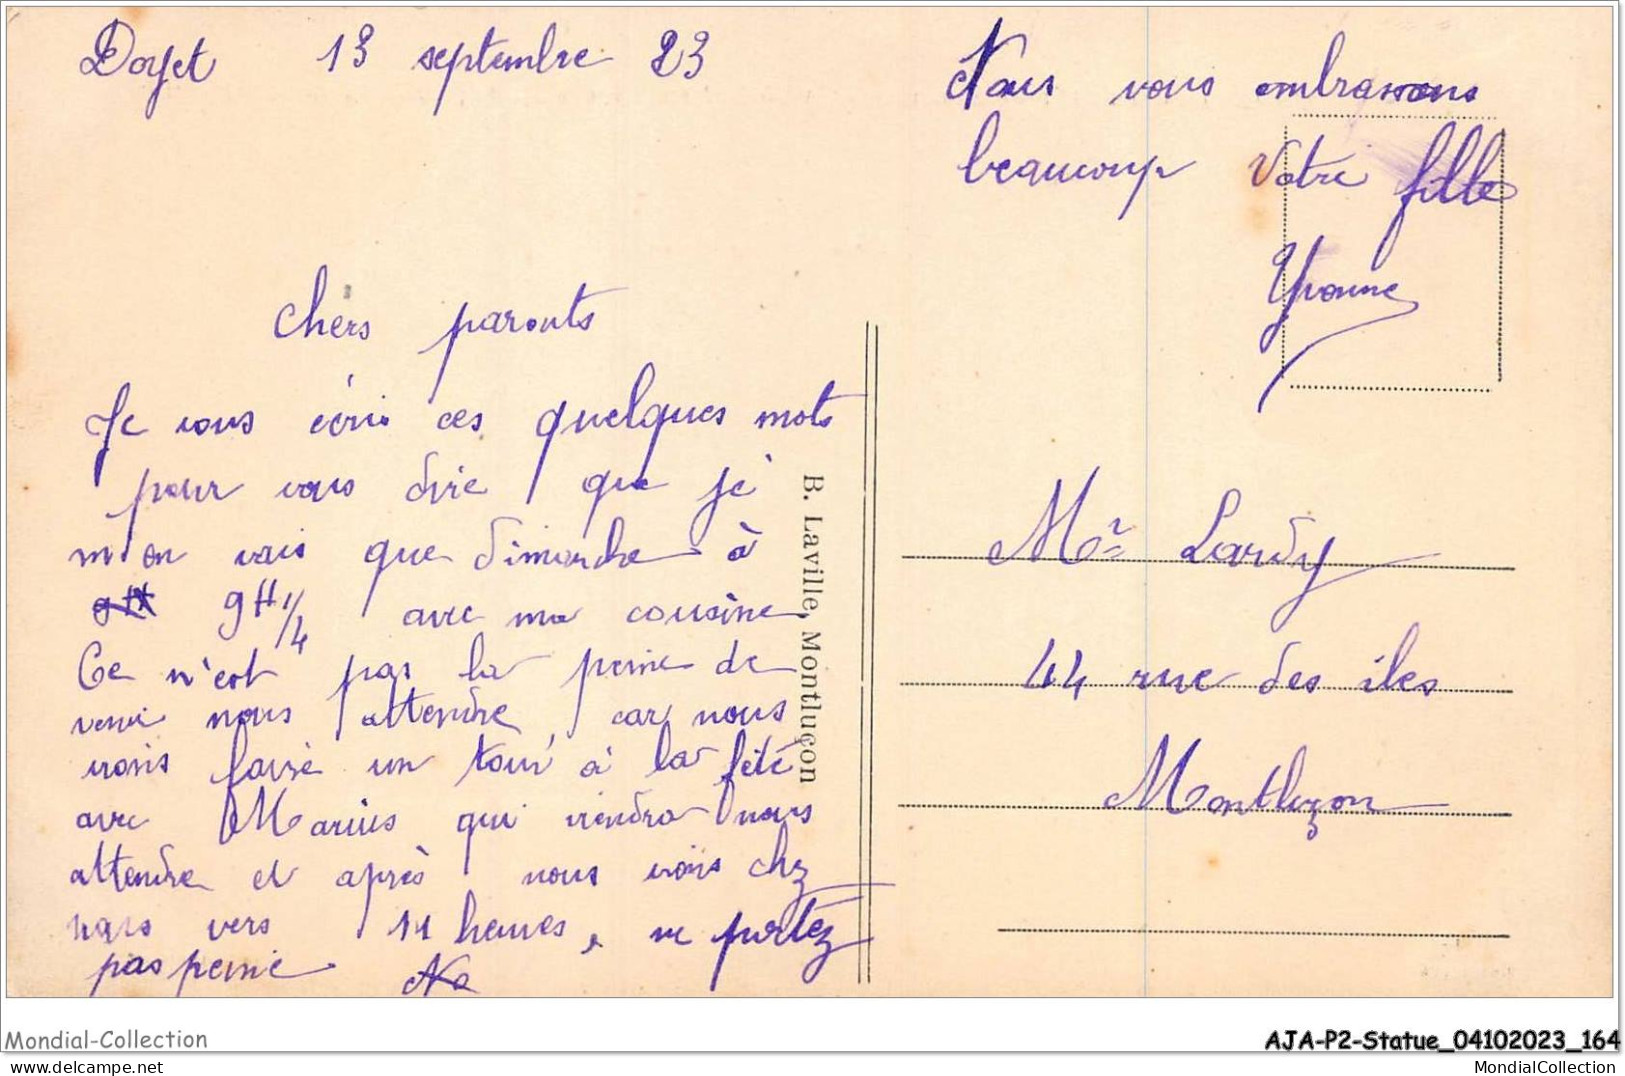 Doyet 13 septembre 23
Chers parents
Je vous écris ces quelques mots
pour vous dire que je
m'en vais que dimanche à
9H 1/4 avec ma cousine
Ce n'est pas la peine de
venir nous attendre, car nous
irons faire un tour à la fête
avec Marius qui viendra nous
attendre et après nous irons chez
nous vers 11 heures, ne portez
pas peine
Nous vous embrassons
beaucoup Votre fille
Yvonne
Mr Lardy
44 rue des îles
Montluçon
B. Laville, Montluçon
Mondial-Collection
AJA-P2-Statue_04102023_164
www.delcampe.net
MondialCollection